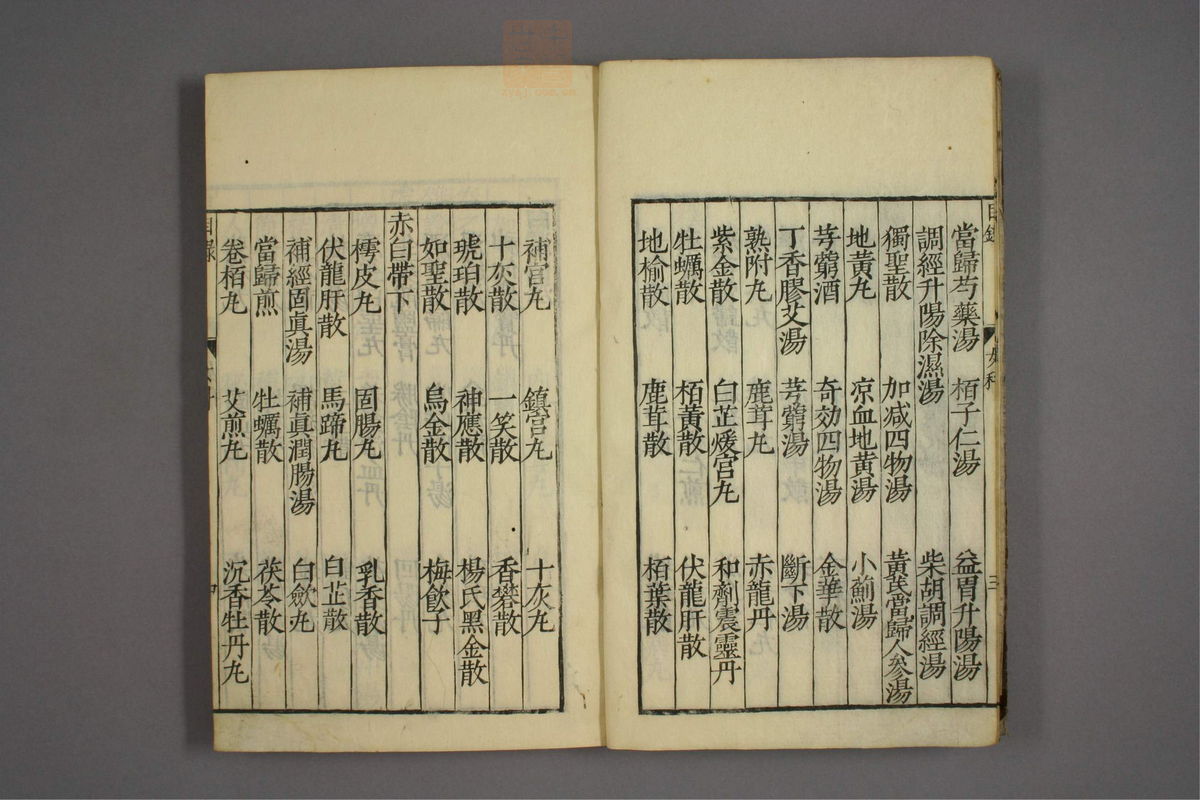 當歸芍藥湯 栢子仁湯 益胃升陽湯
調經升陽除濕湯 柴胡調經湯
獨聖散 加减四物湯 黃芪當歸人參湯
地黃丸 凉血地黃湯 小薊湯
芎藭酒 奇効四物湯 金華散
丁香膠艾湯 芎藭湯 斷下湯
熟附丸 鹿茸丸 赤龍丹
紫金散 白芷煖宫丸 和劑震靈丹
牡蠣散 栢黃散 伏龍肝散
地榆散 鹿茸散 栢葉散
補宫丸 鎮宫丸 十灰丸
十灰散 一笑散 香礬散
琥珀散 神應散 楊氏黑金散
如聖散 烏金散 梅飲子
赤白帶下
樗皮丸 固腸丸 乳香散
伏龍肝散 馬蹄丸 白芷散
補經固眞湯 補眞潤腸湯 白歛丸
當歸煎 牡蠣散 茯苓散
卷栢丸 艾煎丸 沉香牡丹丸